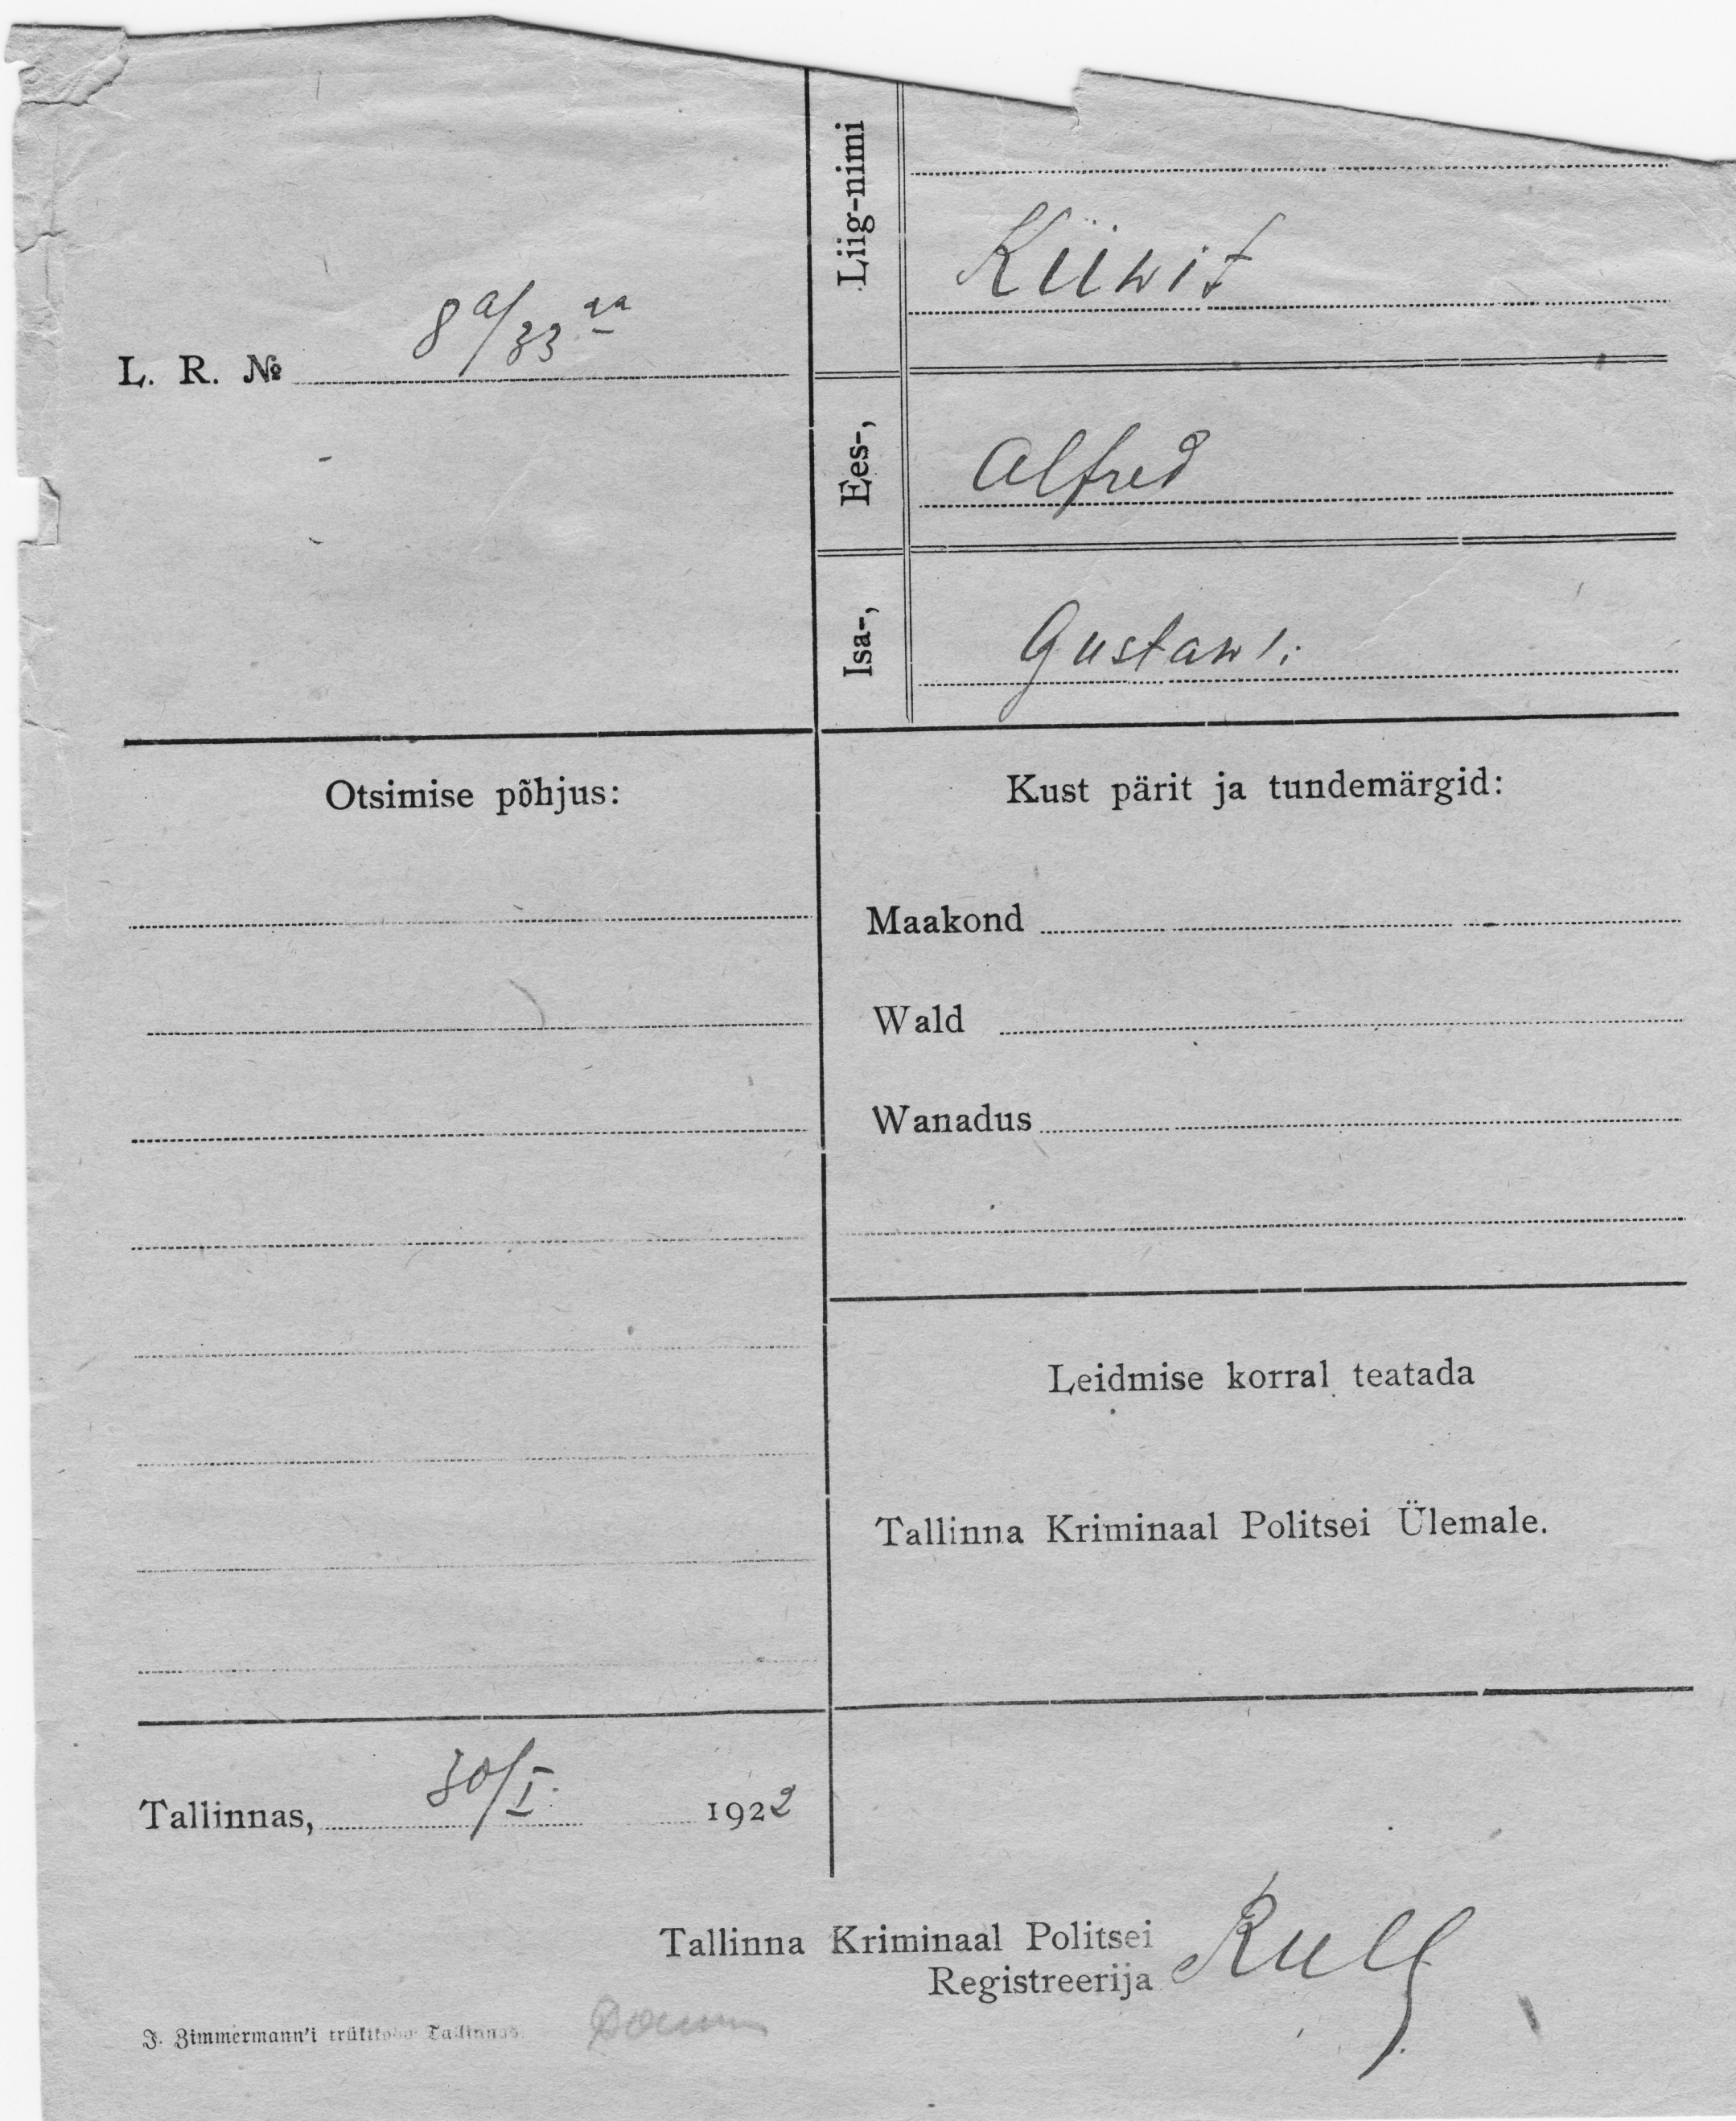 L. R. № 8a/33
Liig-nimi
Küwit
Ees-,
Alfred
Isa-,
Gustawi
Otsimise põhjus:
Kust pärit ja tundemärgid:
Maakond
Wald
Wanadus
Leidmise korral teatada
Tallinna Kriminaal Politsei Ülemale.
Tallinnas, 30/I. 1922
Tallinna Kriminaal Politsei
Registreerija Rull
J. Zimmermann'i trükikoda Tallinnas.